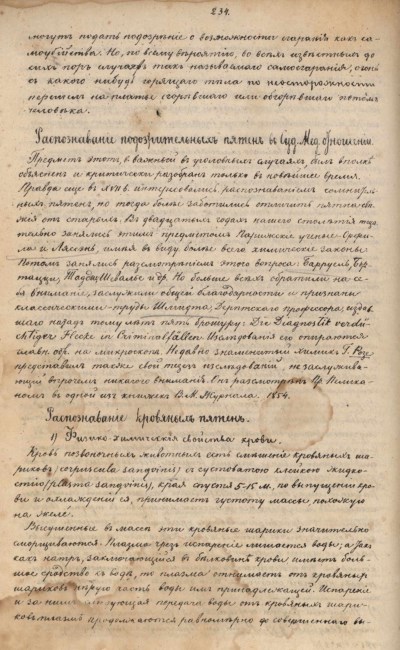 234.
могутъ подать подозрѣніе о возможности сгаратія какъ са-
моубійства. Но, по всему вѣроятію, во всѣхъ извѣстныхъ до
сихъ поръ случаяхъ такъ называемаго самосгаранія, огонь
съ какого нибудь горящаго тѣла по неосторожности
перешелъ на платье сгорѣвшаго или обгорѣвшаго потомъ
человѣка.
Распознаваніе подозрительныхъ пятенъ въ Суд. Мед. отношеніи.
Предметъ этотъ, важный въ уголовныхъ случаяхъ, былъ вполнѣ
объясненъ и критически разобранъ только въ новѣйшее время.
Правда еще въ интересовались распознаваніемъ
пятенъ, но тогда болѣе заботились отличить пятна
отъ старыхъ. Въ двадцатыхъ годахъ нашего столѣтія тща-
тельно занялись этимъ предметомъ Парижскіе ученые Орфи-
ла и имѣя въ виду болѣе всего химическіе законы.
Потомъ занялись разсмотрѣніемъ этого вопроса: Барруель,
и др. Но больше всѣхъ обратили на се-
бя вниманіе, заслужили общей благодарности и признаны
классическими труды Шмидта, Дерптскаго профессора; издав-
шаго назадъ тому лѣтъ пять брошюру: Die Diagnostik verdä-
chtiger Flecke in Criminalfällen. Изслѣдованія его опираются
главн. обр. на микроскопъ. Недавно знаменитый химикъ Г. Розе
представилъ также свои изслѣдованія, не заслужива-
ющія впрочемъ никакого вниманія. Онъ разсмотрѣнъ Пелика-
номъ въ одной изъ книжекъ В. М. Журнала. 1854.
Распознаваніе кровяныхъ пятенъ.
1) Физико-химическія свойства крови.
Кровь позвоночныхъ животныхъ есть смѣшеніе кровяныхъ ша-
риковъ (corpuscula sanguinis) съ густоватою клейкою жидко-
стію (plasma sanguinis), коя спустя 5-15 м. по выпущеніи кро-
ви и охлажденіи ея, принимаетъ густоту массы, похожую
на желе.
Высушенные въ массѣ эти кровяные шарики значительно
сморщиваются. Плазма чрезъ испареніе лишается воды; а такъ
какъ натръ, заключающійся въ бѣлковинѣ крови имѣетъ боль-
шое сродство къ водѣ, то плазма отнимаетъ отъ кровяныхъ
шариковъ часть воды имъ принадлежащей. Испареніе
и за нимъ передача воды отъ кровяныхъ шари-
ковъ плазмѣ продолжаются равномѣрно до совершеннаго вы-